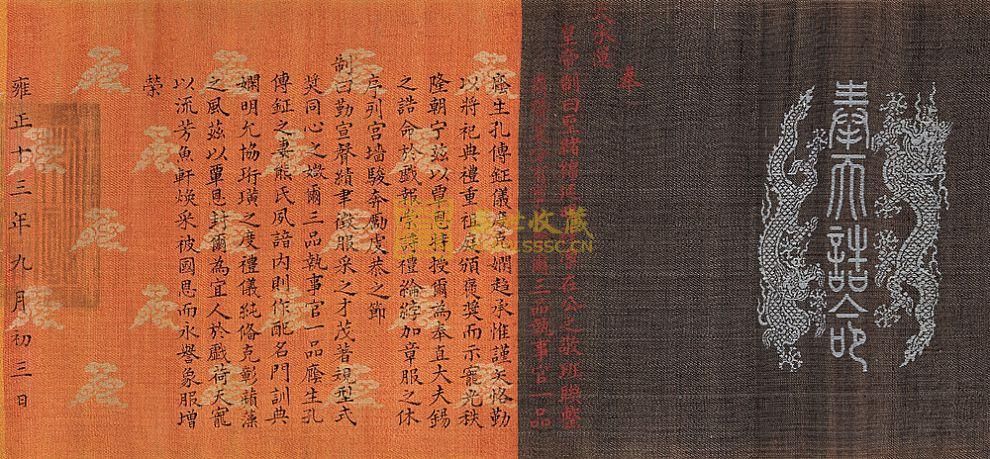 奉天誥命
奉
天承運
皇帝制曰聖緒在公之敬班聯
三品執事官一品
廕生孔傳鉦儀度克嫻趨承惟謹矢恪勤
以將祀典禮重祖庭頒褒奬而示寵光秩
隆朝宁茲以覃恩特授爾為奉直大夫錫
之誥命於戲報崇詩禮綸綍加章服之休
序列宮墻駿奔勵虔恭之節
制曰勤宣聲績聿徵服采之才茂著視型式
奬同心之媺爾三品執事官一品廕生孔
傳鉦之妻熊氏夙諳內則作配名門訓典
嫻明允協珩璜之度禮儀純備克彰蘋藻
之風茲以覃恩封爾為宜人於戲荷天寵
以流芳魚軒煥采被國恩而永譽象服增
榮
雍正十三年九月初三日
世收藏
SSSC.CN